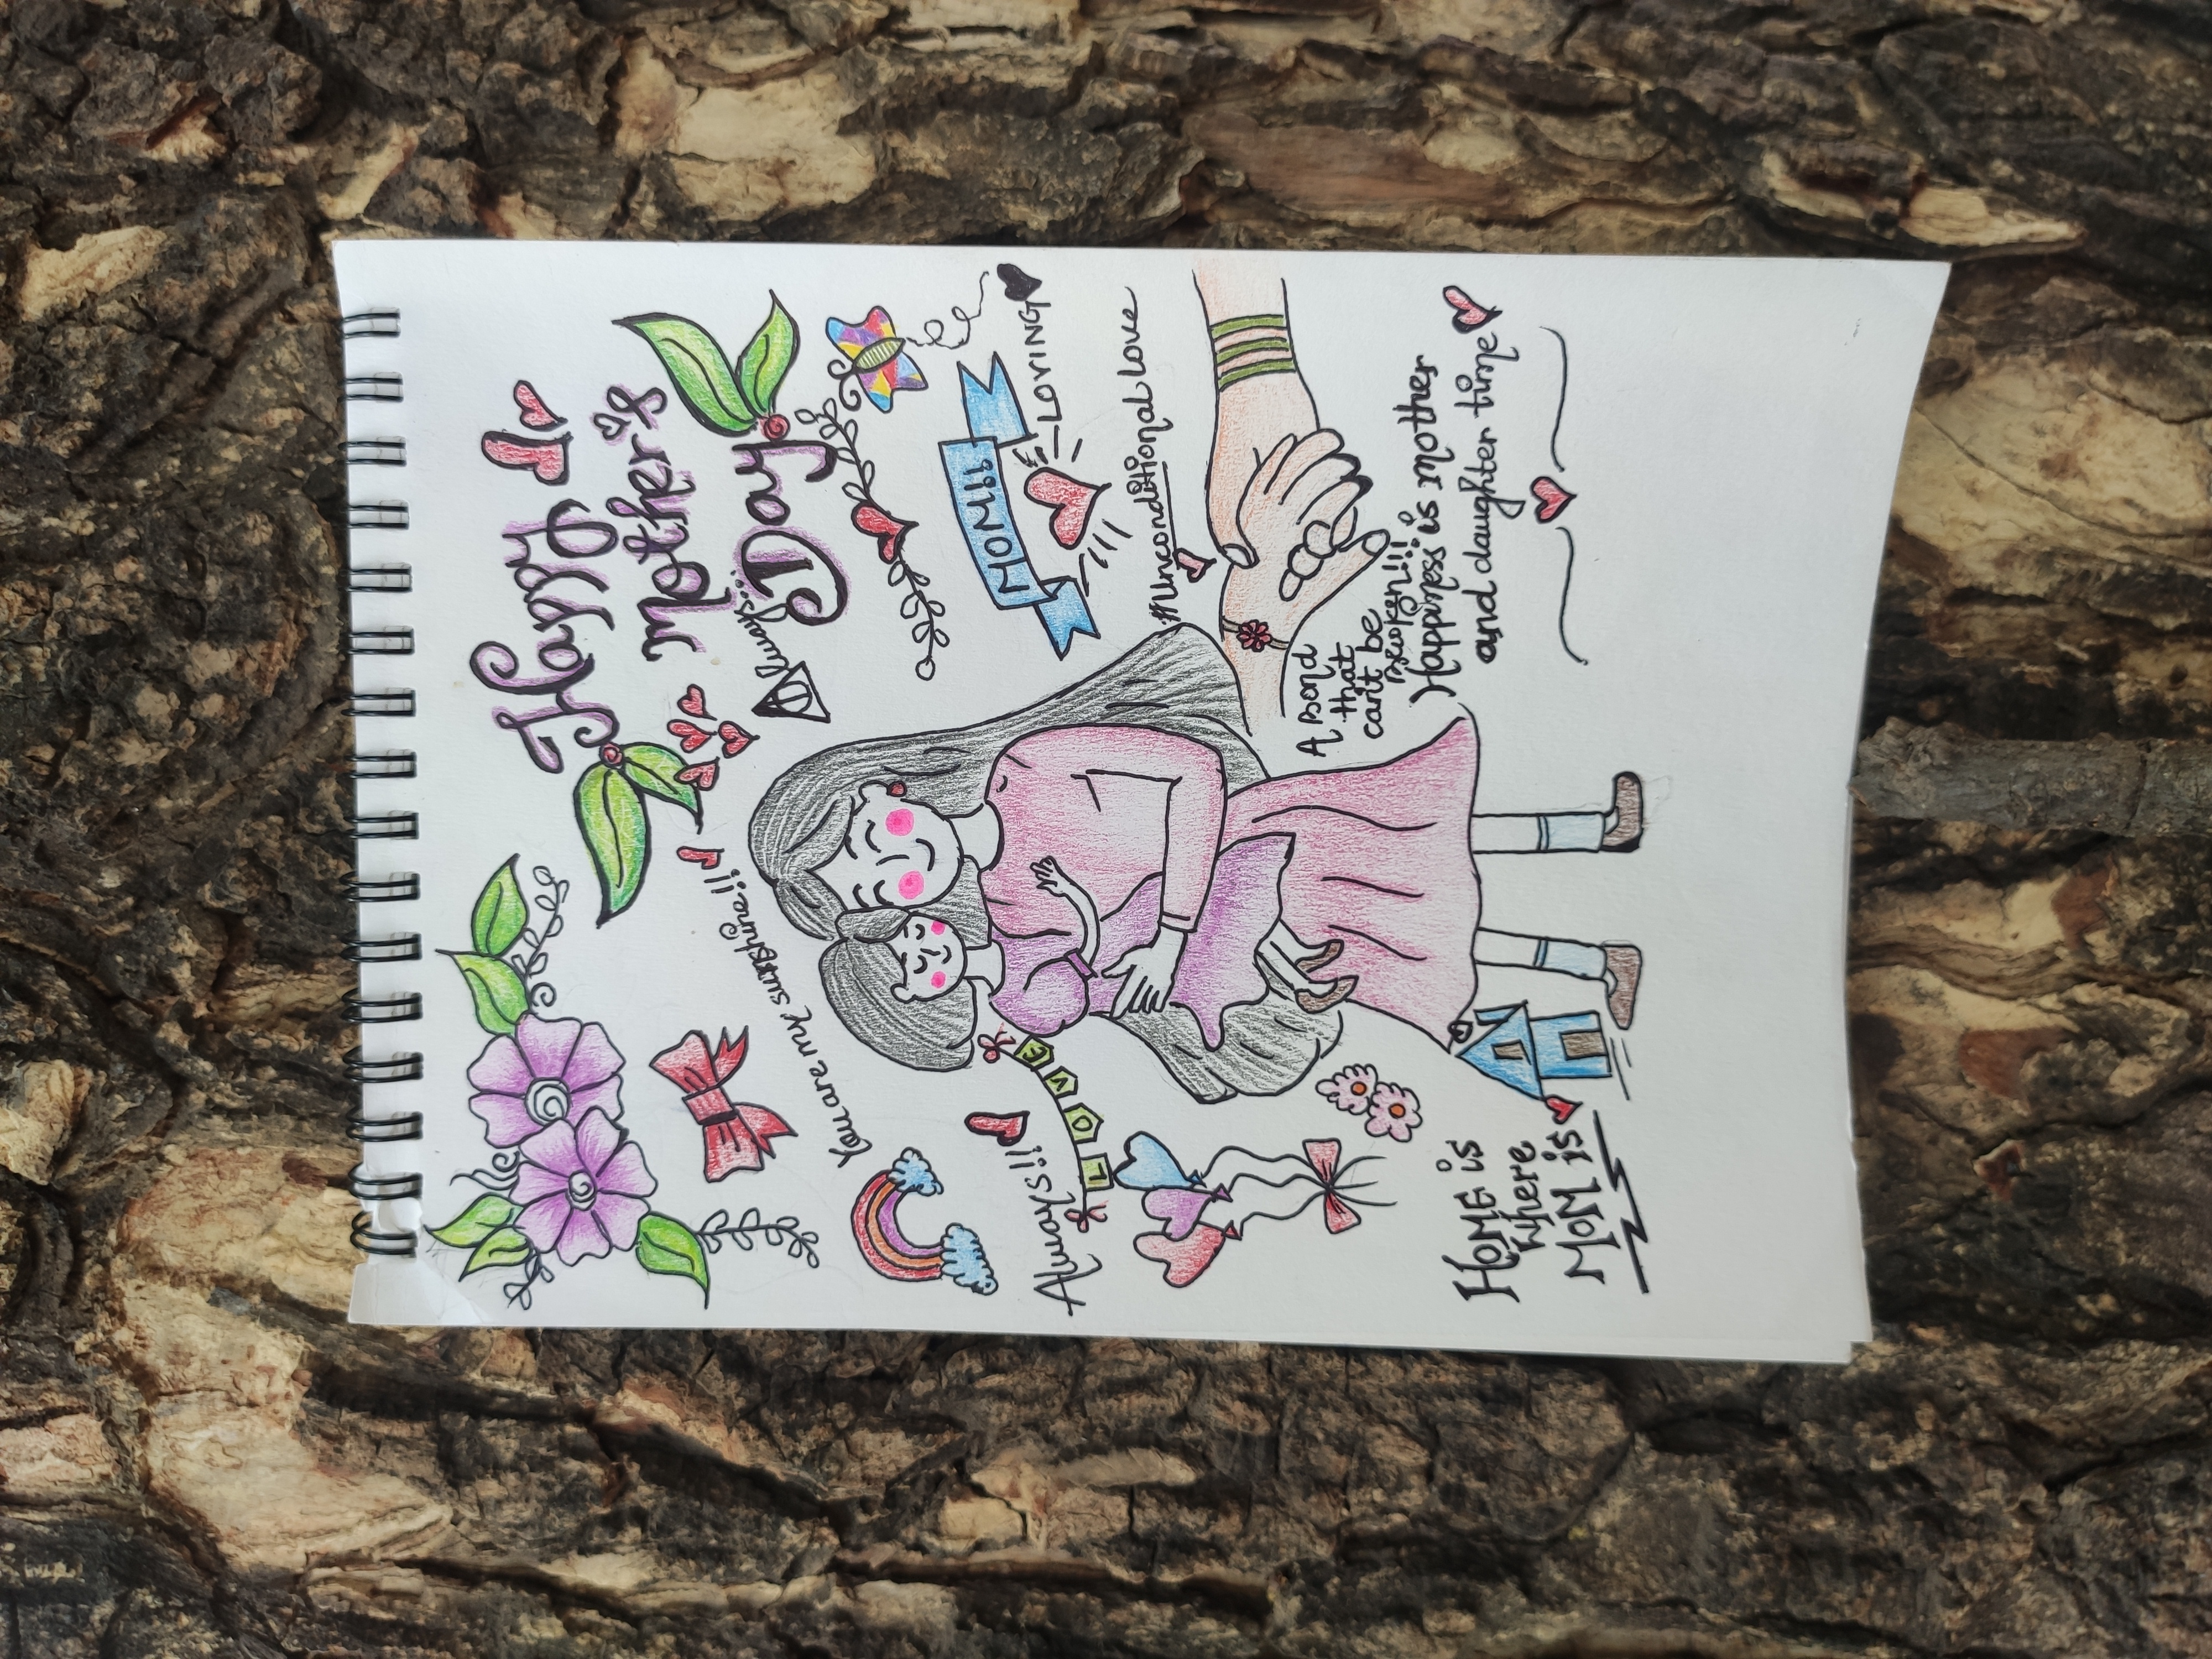 Happy
Mother's
Day
Always...
You are my sunshine!!
Always!!
LOVE
MOM!!
LOVING
#Unconditional Love
A Bond
that
can't be
Broken!!!
Happiness is mother
and daughter time
HOME is
where
MOM is